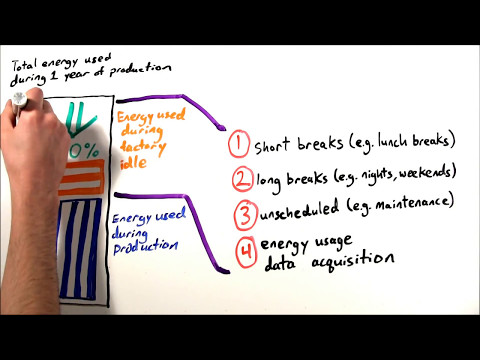 Total energy used
during 1 year of production
0%
Energy used
during
factory
idle
Energy used
during
production
1 short breaks (e.g. lunch breaks)
2 long breaks (e.g. nights, weekends)
3 unscheduled (e.g. maintenance)
4 energy usage
data acquisition